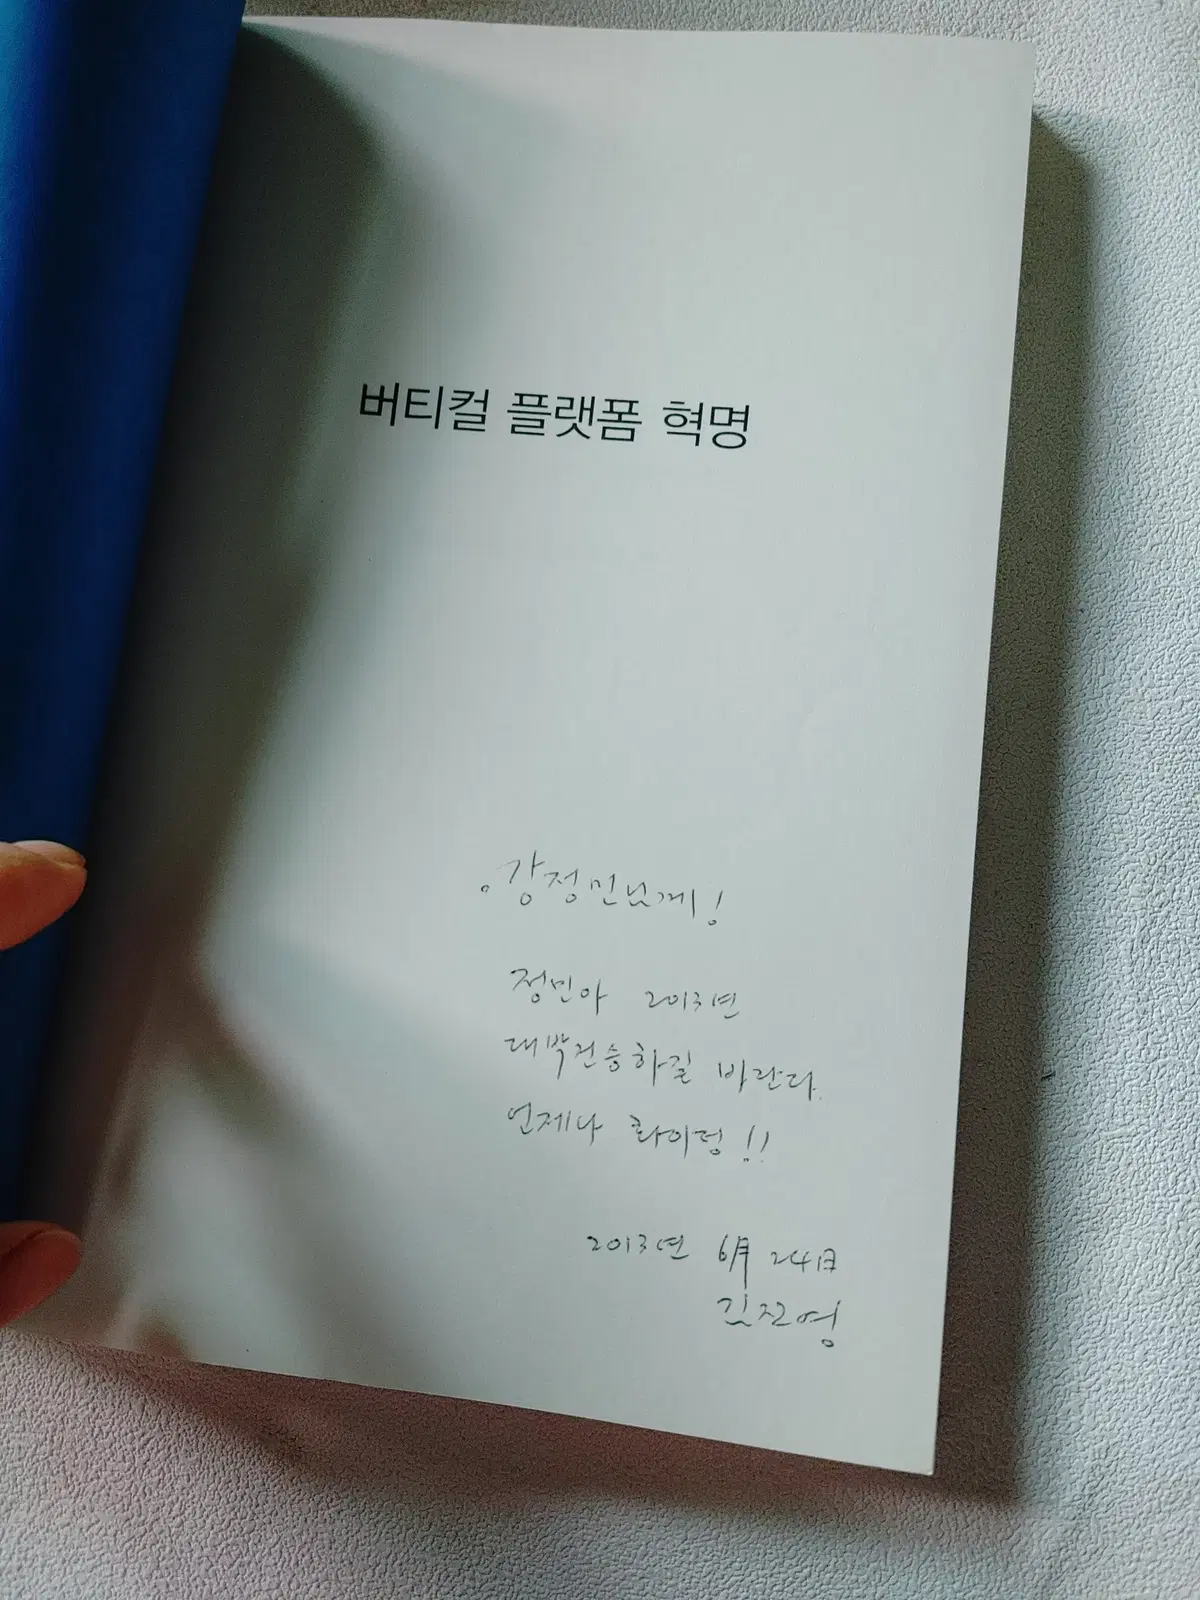 버티컬 플랫폼 혁명
강정민님께!
정민아 2013년
대박전승하길 바란다.
언제나 화이팅!!
2013년 6月 24日
김진영